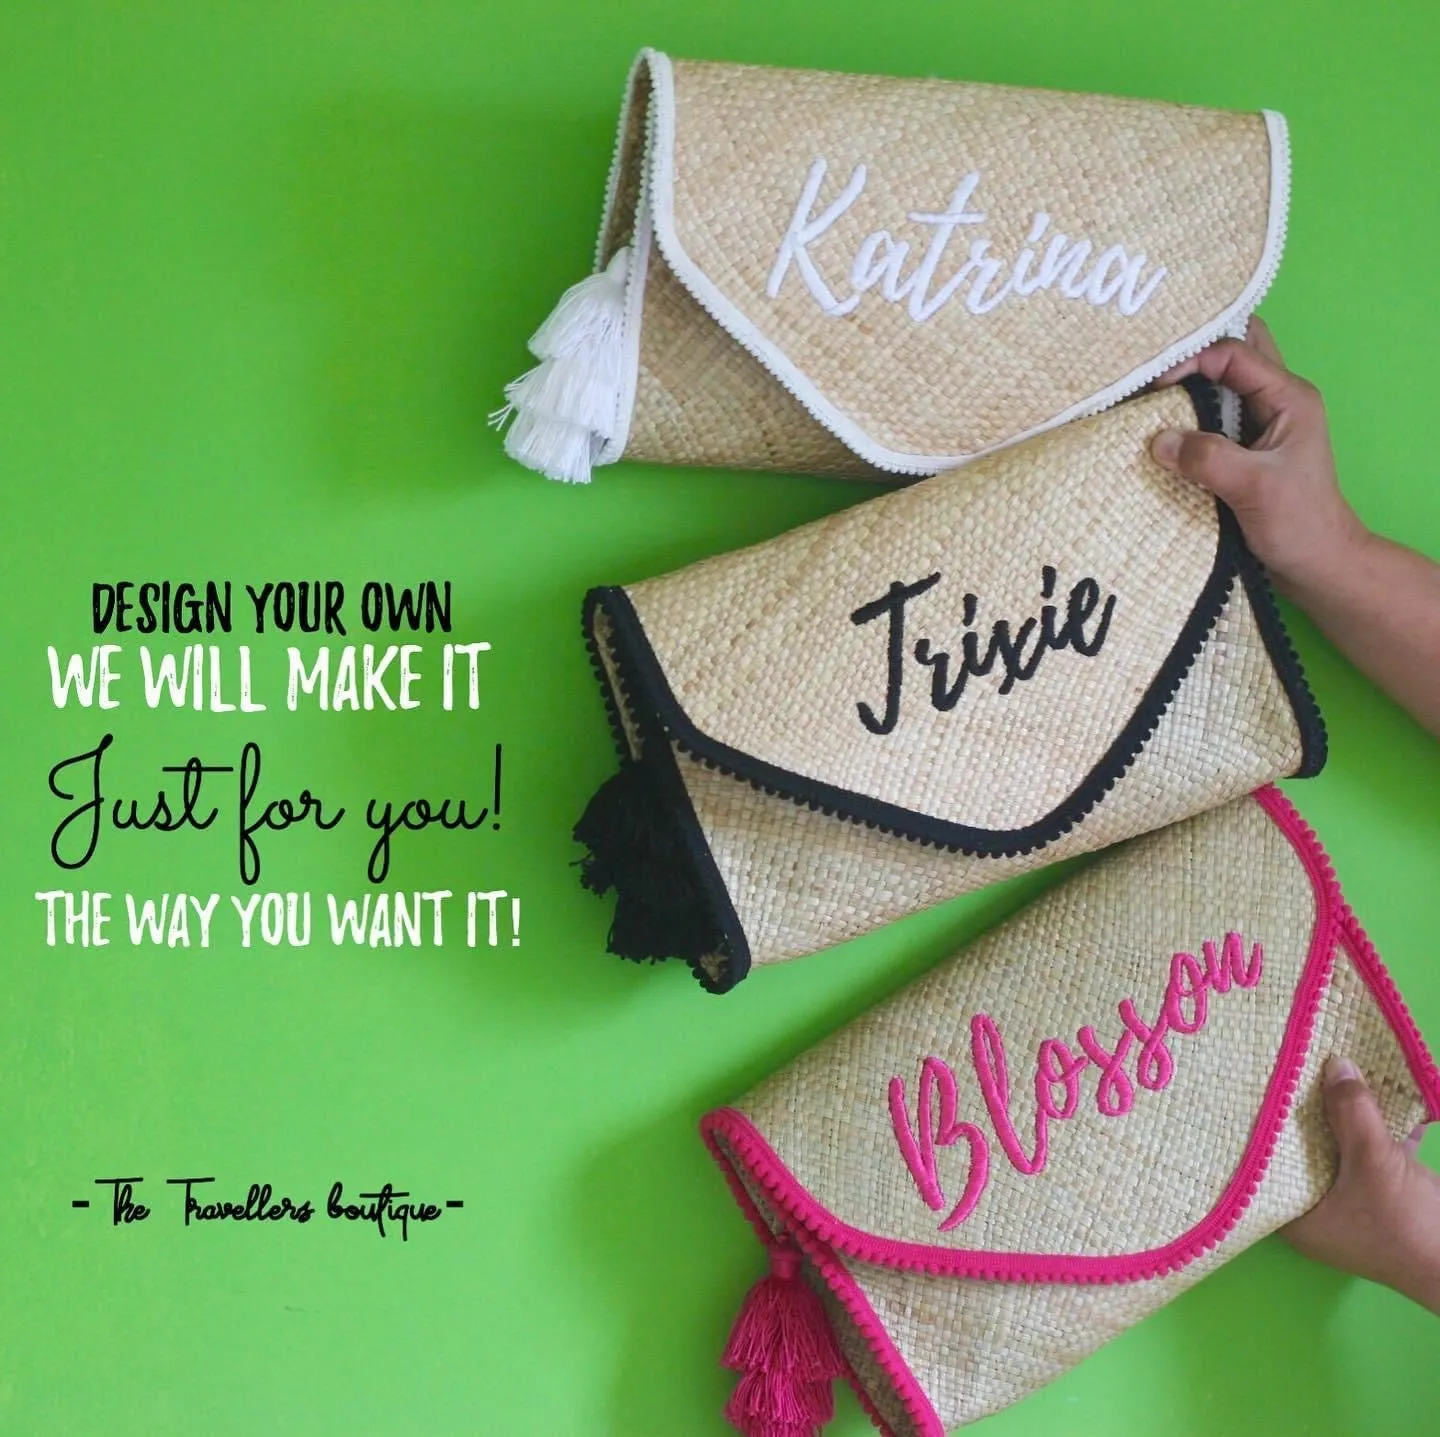 Katrina
Trixie
DESIGN YOUR OWN
WE WILL MAKE IT
Just for you!
THE WAY YOU WANT IT!
Blosson
- The Travellers boutique -